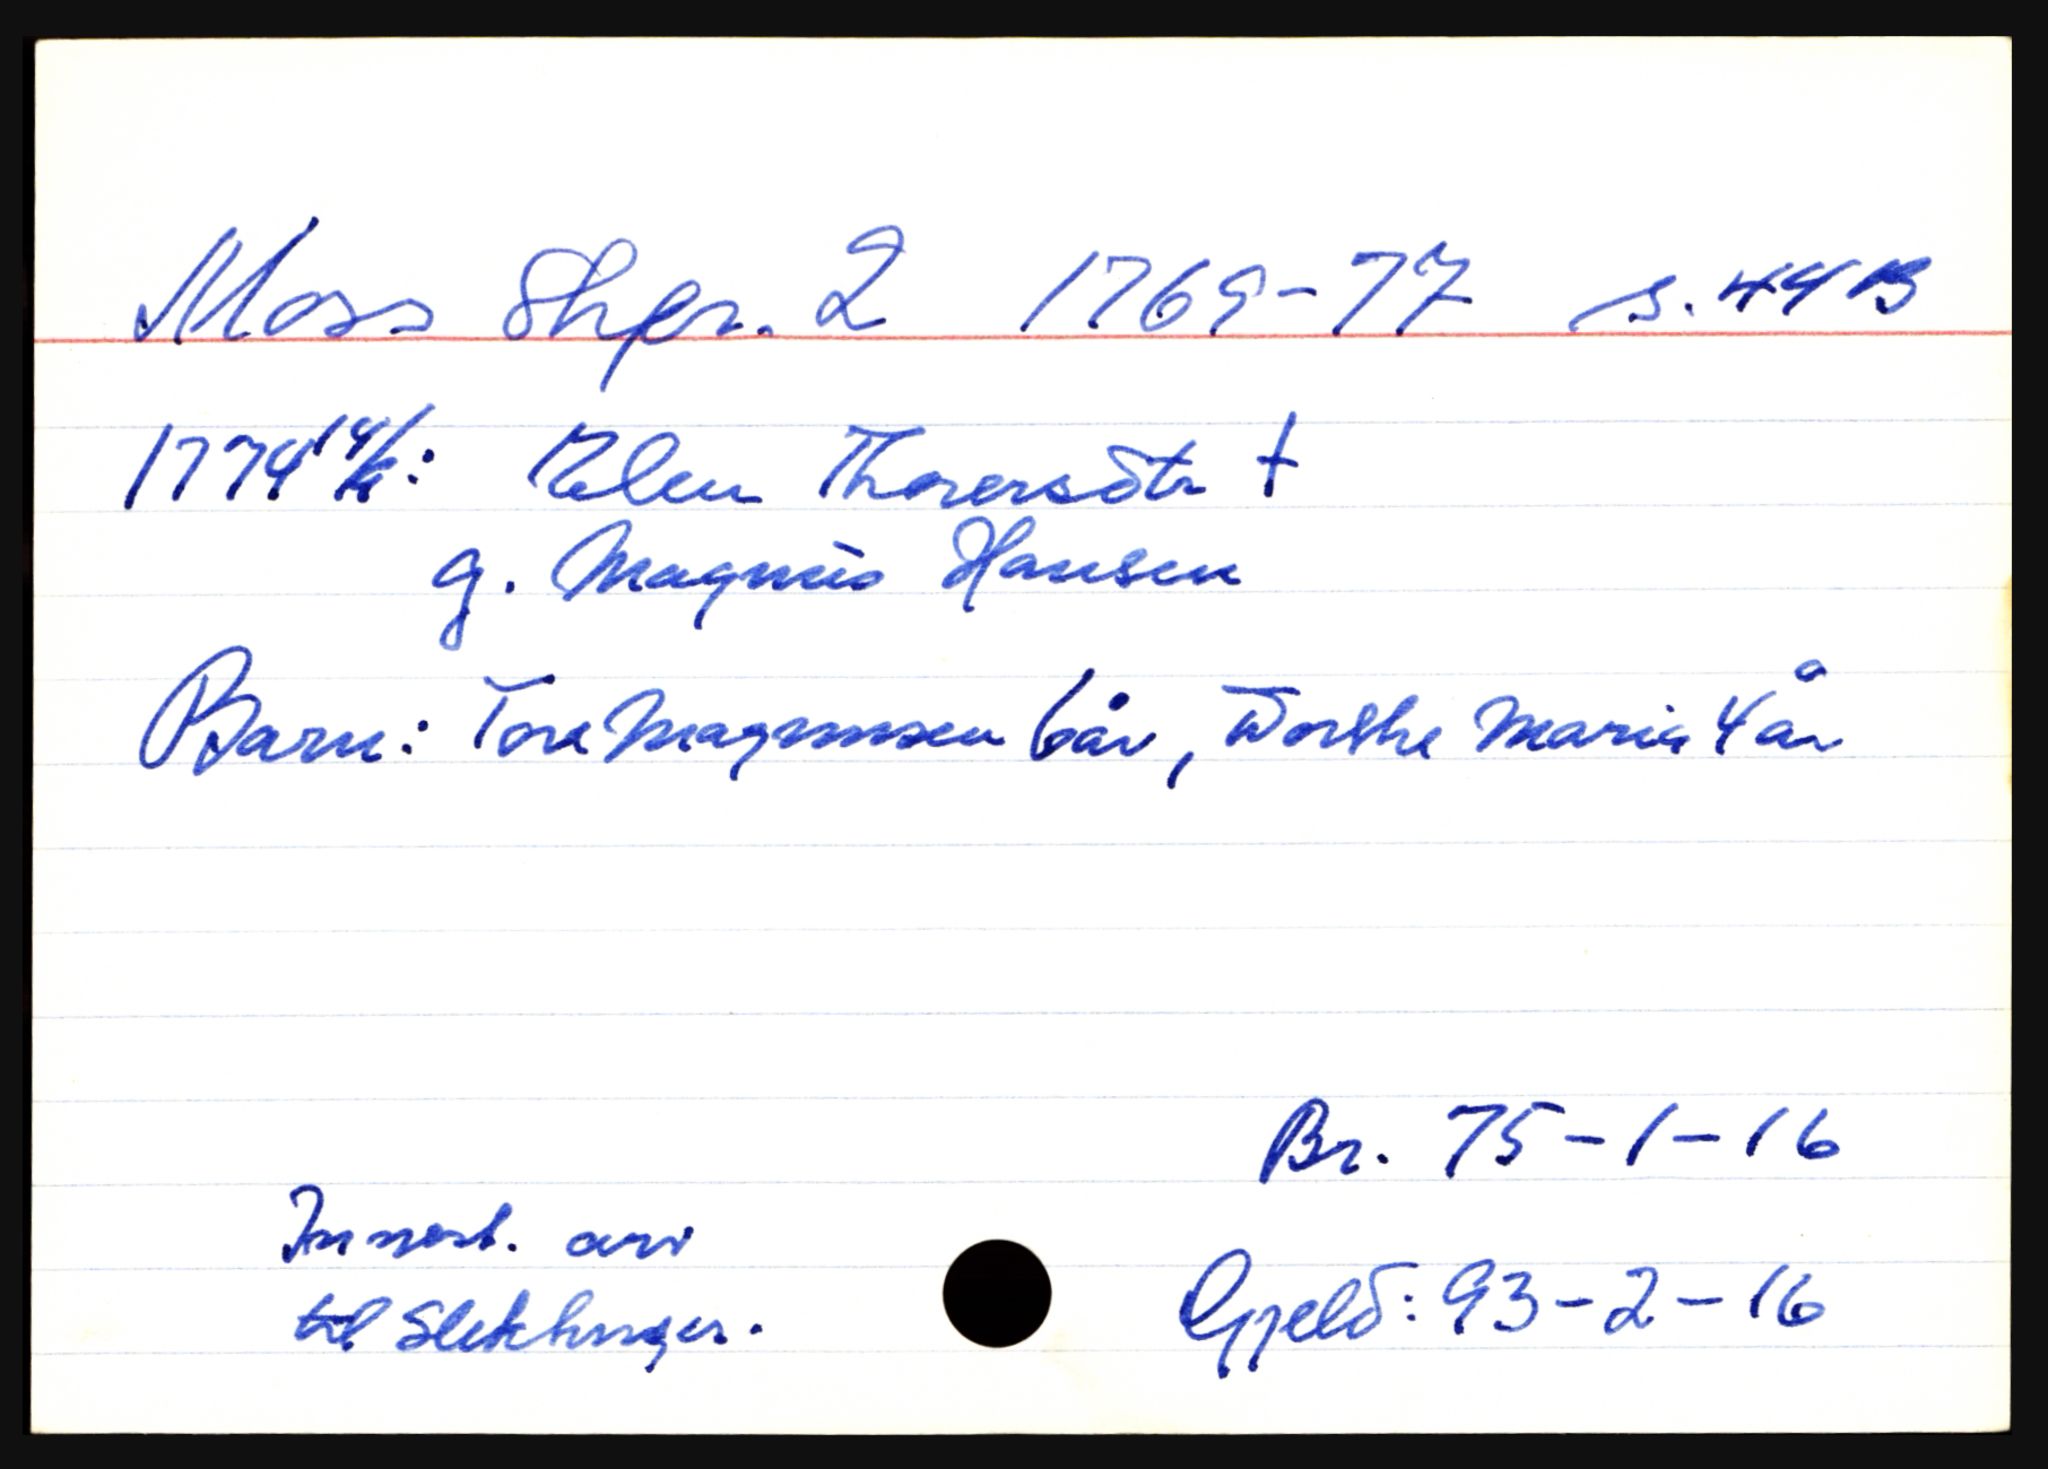 Moss Skpr. 2 1769-77 s. 44 B
1774 14/: Elen Thorersdtr †
g. Magnus Hansen
Barn: Tore Magnussen 6 år, Dorthe Maria 4 år
Br. 75-1-16
Innest. arv
Gjeld: 93-2-16
til slektninger.